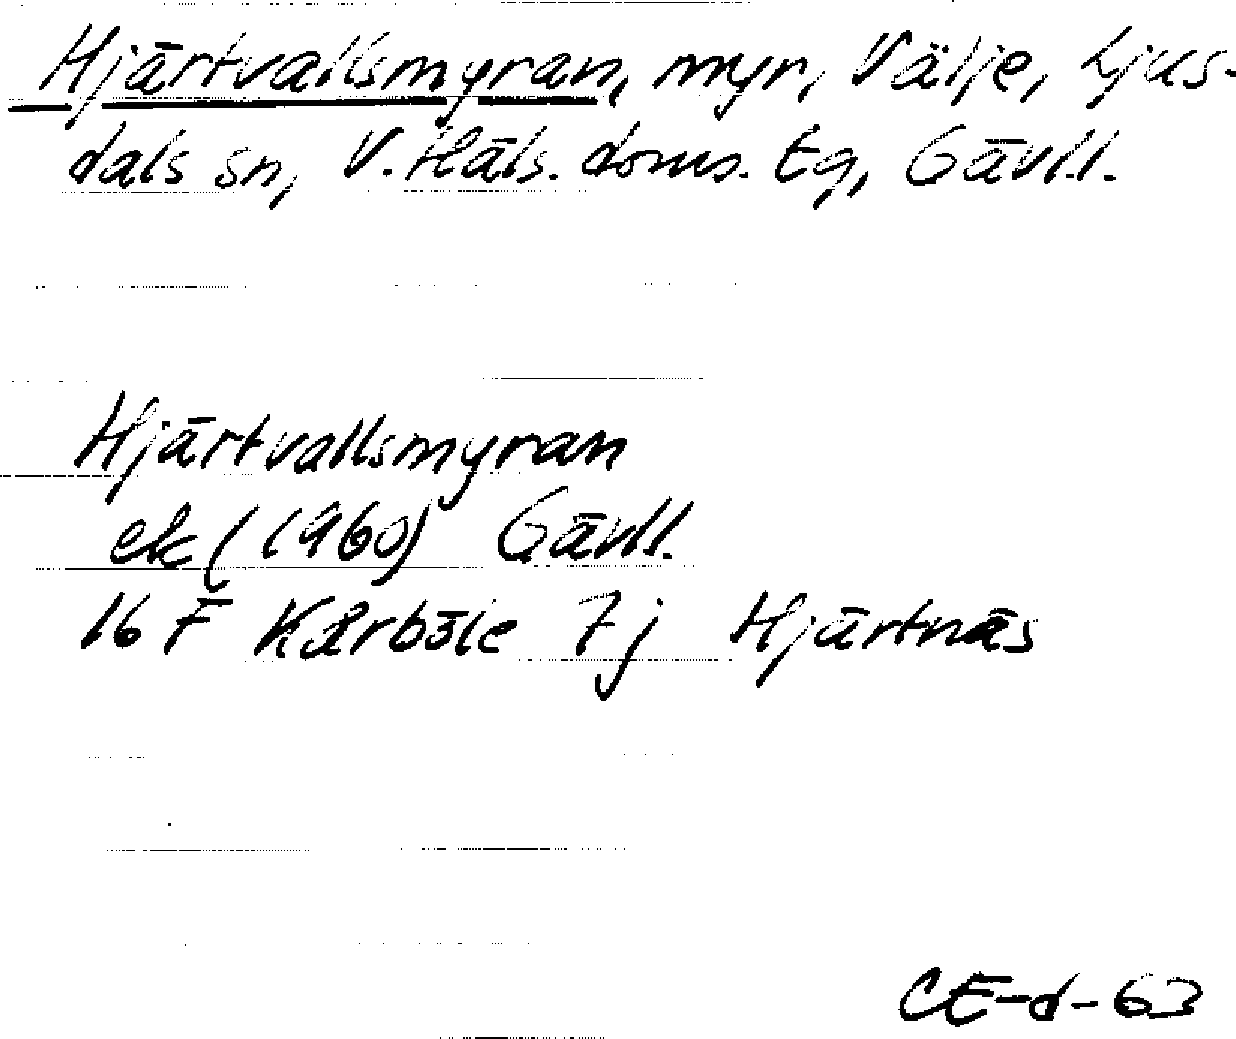 Hjärtvallsmyran, myr, Välje, Ljus-
dals sn, V. Häls. doms. tg, Gävl.l.
Hjärtvallsmyran
ek (1960) Gävl.l.
16 F Kårböle 7 j Hjärtnäs
CE-d-63